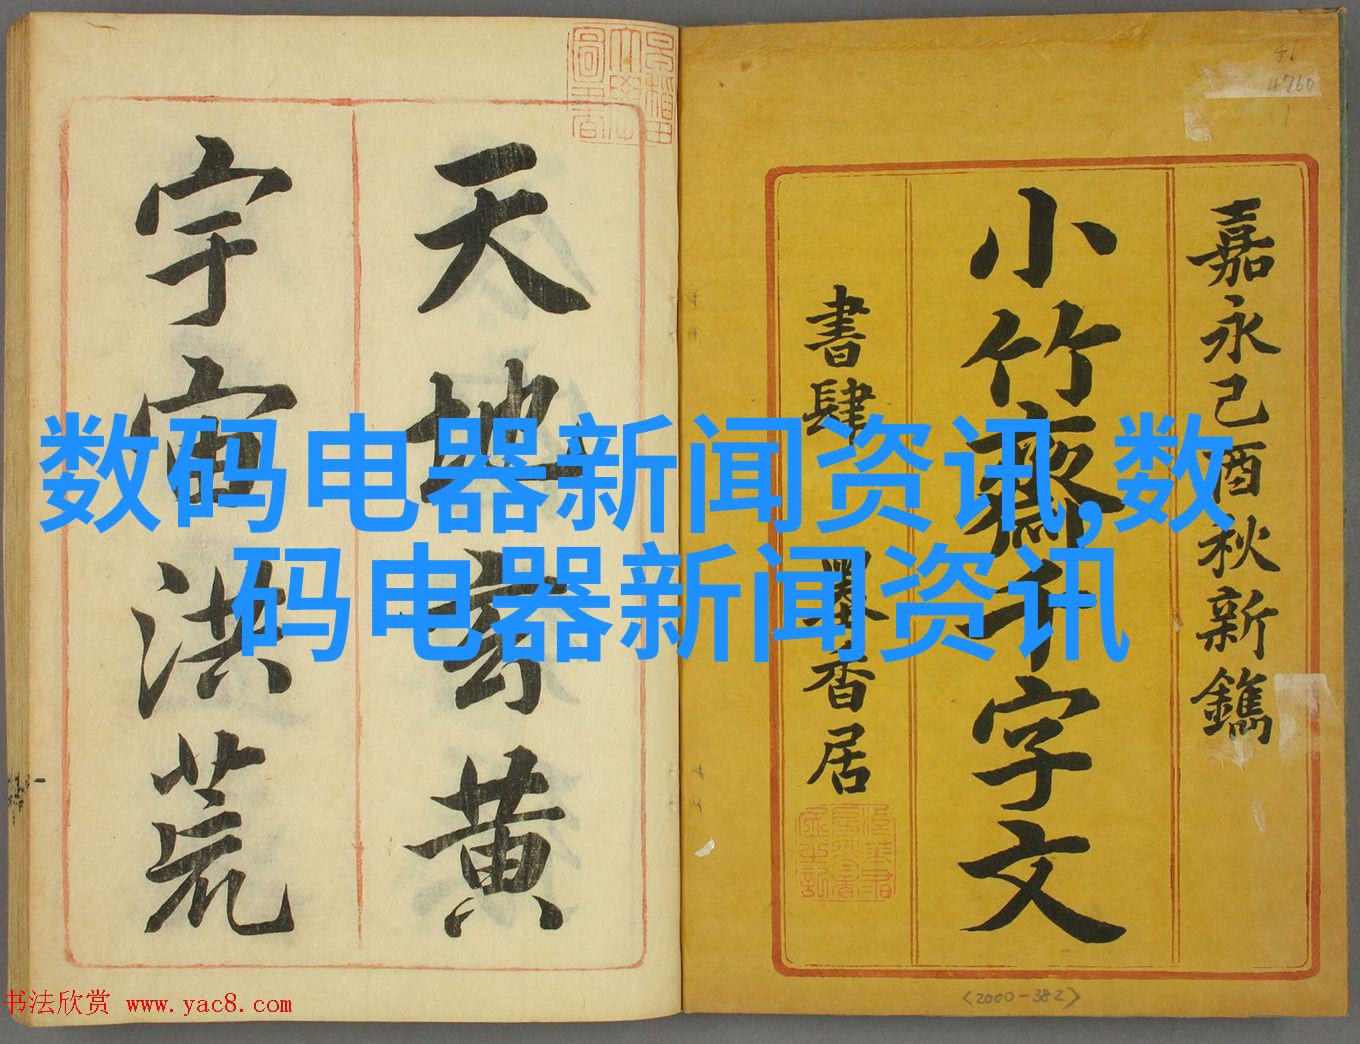 嘉永己酉秋新鐫
小竹齋千字文
書肆 墨香居
天地玄黄
宇宙洪荒
数码电器新闻资讯,数
码电器新闻资讯
4760
<2000-382>
书法欣赏 www.yac8.com